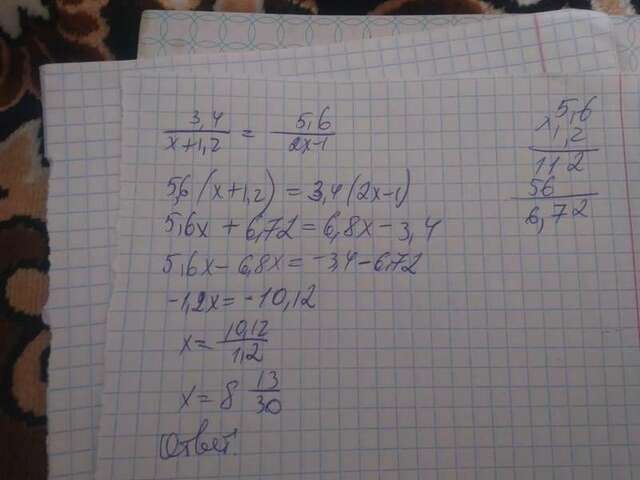 3,4 / x+1,2 = 5,6 / 2x-1
5,6(x+1,2)=3,4(2x-1)
5,6x+6,72=6,8x-3,4
5,6x-6,8x=-3,4-6,72
-1,2x=-10,12
x=10,12/1,2
x=8 13/30
Ответ.
5,6
×1,2
112
56
6,72